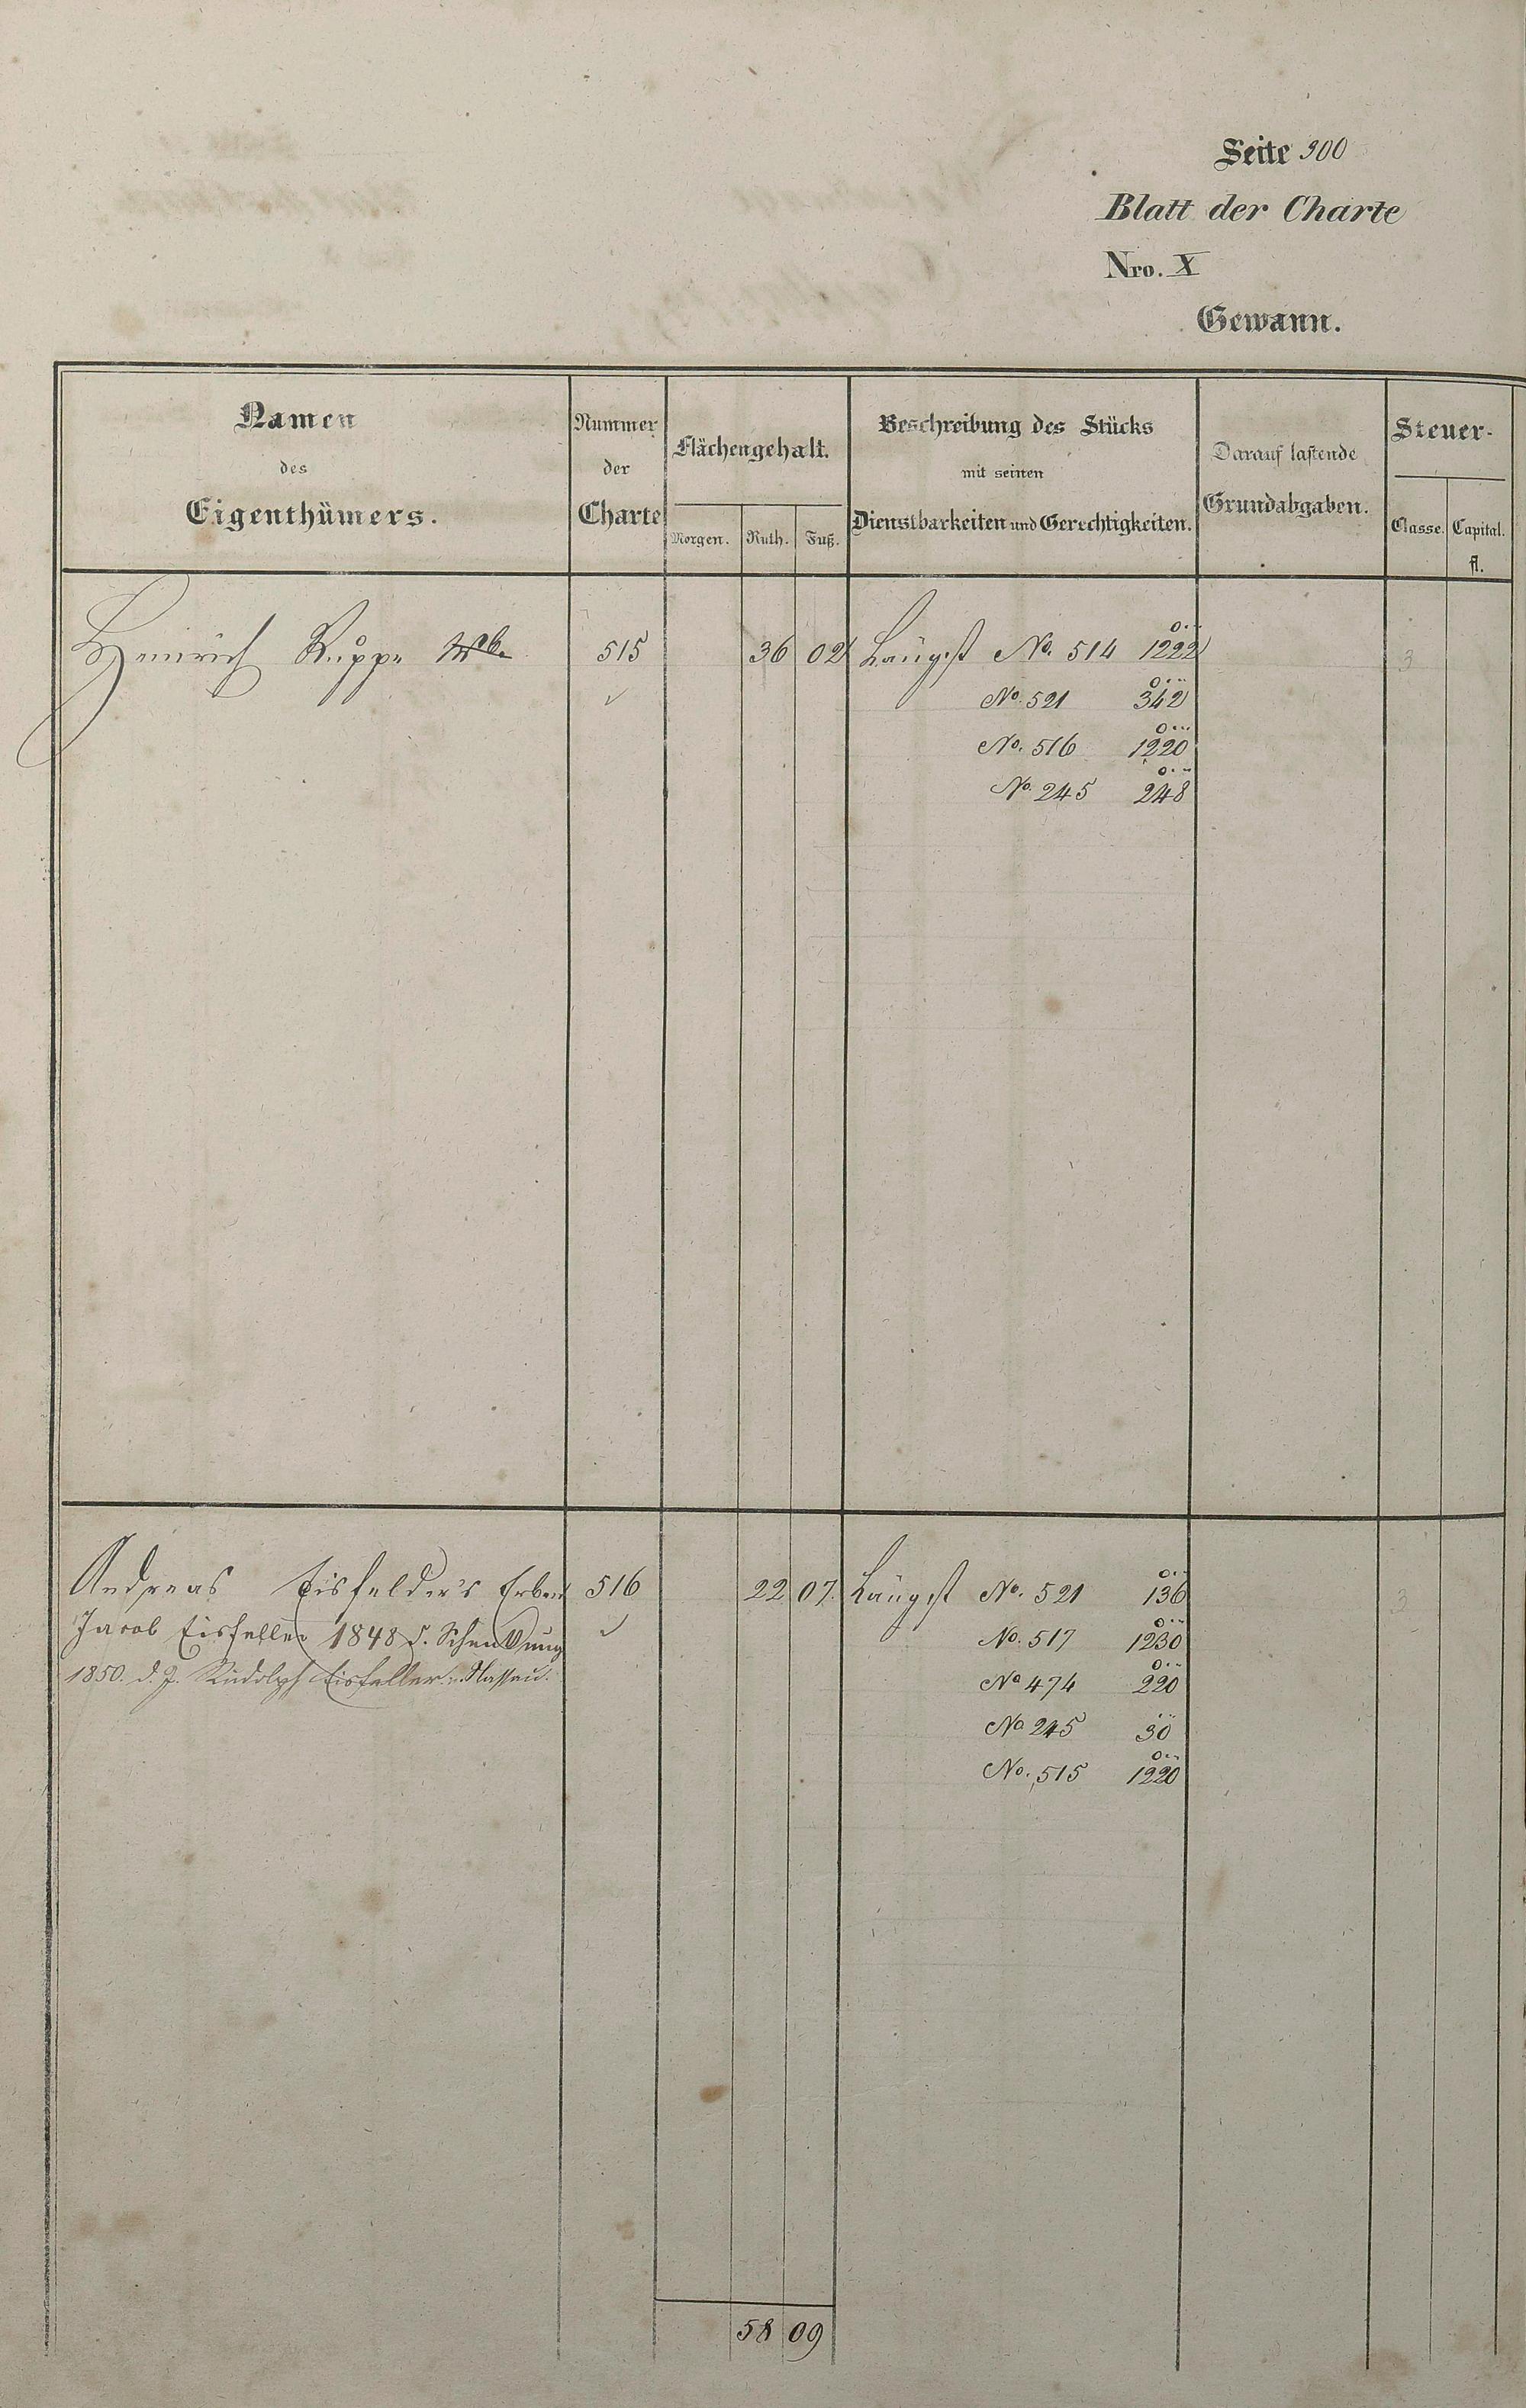 Seite 900
Blatt der Charte
Nro. X
Gewann.
Namen des Eigenthümers.
Nummer der Charte
Flächengehalt.
Morgen. Ruth. Fuß.
Beschreibung des Stücks mit seinen Dienstbarkeiten und Gerechtigkeiten.
Darauf lastende Grundabgaben.
Steuer-
Classe. Capital. fl.
Heinrich Ruppe 515 36 02 Längst No. 514 1222 3
No. 521 342
No. 516 1220
No. 245 248
Andreas Eisfelder's Erben 516 22 07. Längst No. 521 136 3
Jacob Eisfeller 1848 d. Schenkung No. 517 1230
1850. d. J. Rudolph Eisfeller v. Nassau. No 474 220
No 245 30
No. 515 1220
58 09